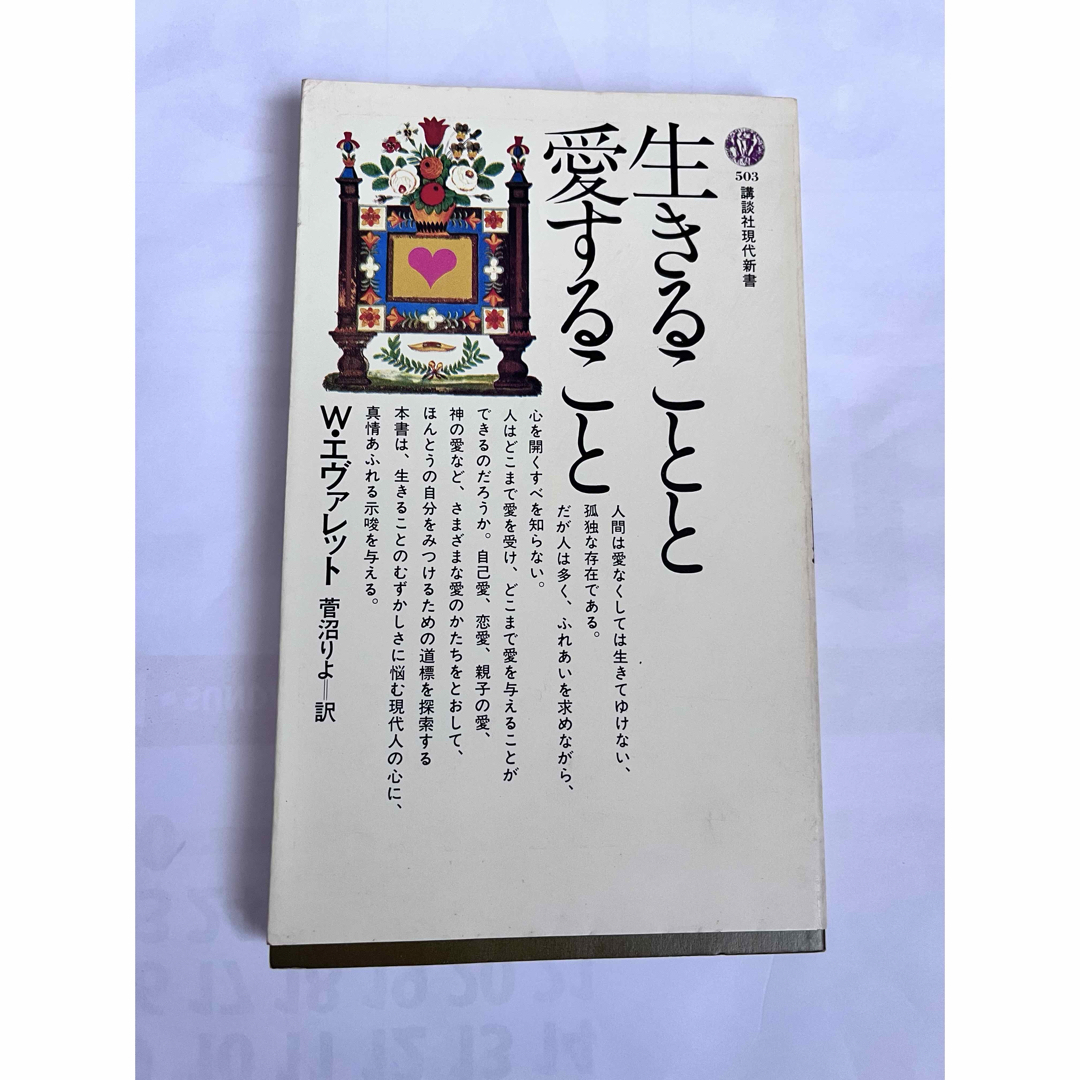 503
講談社現代新書
生きることと
愛すること
人間は愛なくしては生きてゆけない、
孤独な存在である。
だが人は多く、ふれあいを求めながら、
心を開くすべを知らない。
人はどこまで愛を受け、どこまで愛を与えることが
できるのだろうか。自己愛、恋愛、親子の愛、
神の愛など、さまざまな愛のかたちをとおして、
ほんとうの自分をみつけるための道標を探索する
本書は、生きることのむずかしさに悩む現代人の心に、
真情あふれる示唆を与える。
W・エヴァレット 菅沼りよ=訳